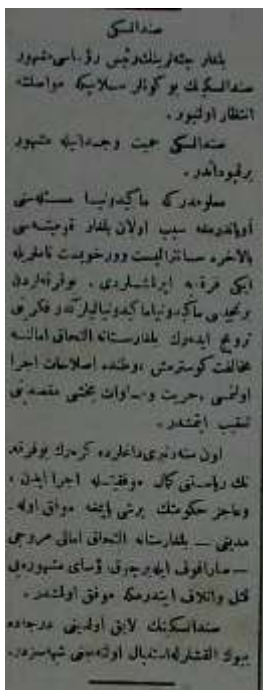 صندانسكی
بلغار چته‌لرینك رئیس رؤساسی مشهور
صندانسكینك بو كونلر سلانیكه مواصلته
انتظار اولنیور.
صندانسكی حمیت وجدانیله مشهور
برقومیته‌جیدر.
معلومدركه ماكیدونیا مسئله‌سنی
اویاندرمغه سبب اولان بلغار قومیته‌سی
بالآخره سانترالیست وورخویست ناملریله
ایكی فرقه‌یه ایرلشلردی. بوفرقه‌لردن
برنجیسی ماكیدونیا ماكیدونیالیلرگدر فكرینی
ترویج ایده‌رك بلغارستانه التحاق امالنه
مخالفت كوسترمش، وطنده اصلاحات اجرا
اولنمسی، حریت ومساوات بخشی مقصدینی
تعقیب ایتمشدر.
اون سنه‌دنبری داخلرده كزه‌رك بوفرقه‌
نك ریاستنی كمال موفقیتله اجرا ایدن،
وعاجز حكومتك برشی یاپمغه موفق اوله‌
مدیغی — بلغارستانه التحاق امالی مروجی
— صارافوف ایله برچوق رؤسای مشهوره‌یی
قتل واتلاف ایتدرمكه موفق اولمشدر.
صندانسكینك لایق اولدیغی درجه‌ده
بیوك القشلرله استقبال اولنه‌جغی شبهه‌سزدر.